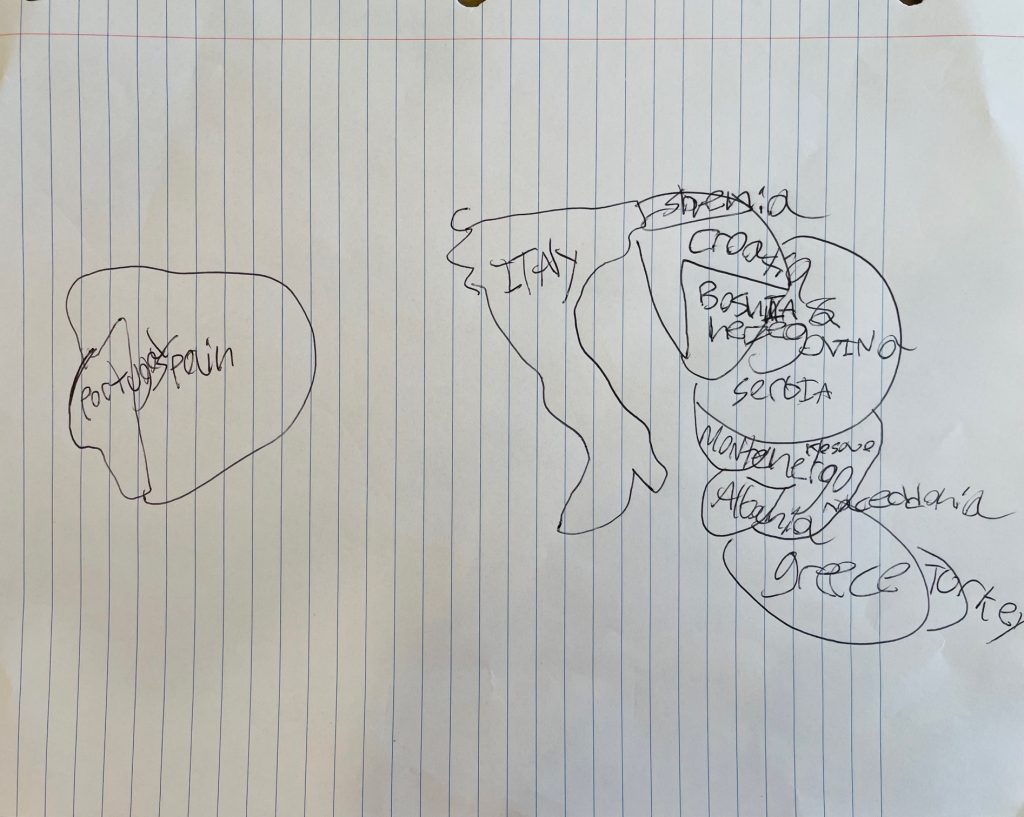 Portugal
Spain
ITALY
Slovenia
Croatia
BOSNIA &
herzeg
OVINA
serbIA
Montenergo
Kesove
Albania
maceddonia
greece
Torkey